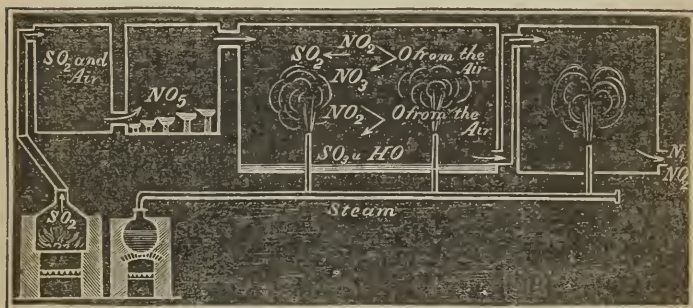 SO2 and
Air
NO5
NO2
SO2
O from the
Air
NO3
NO2
O from the
Air
SO3 u HO
Steam
SO2
N
NO2